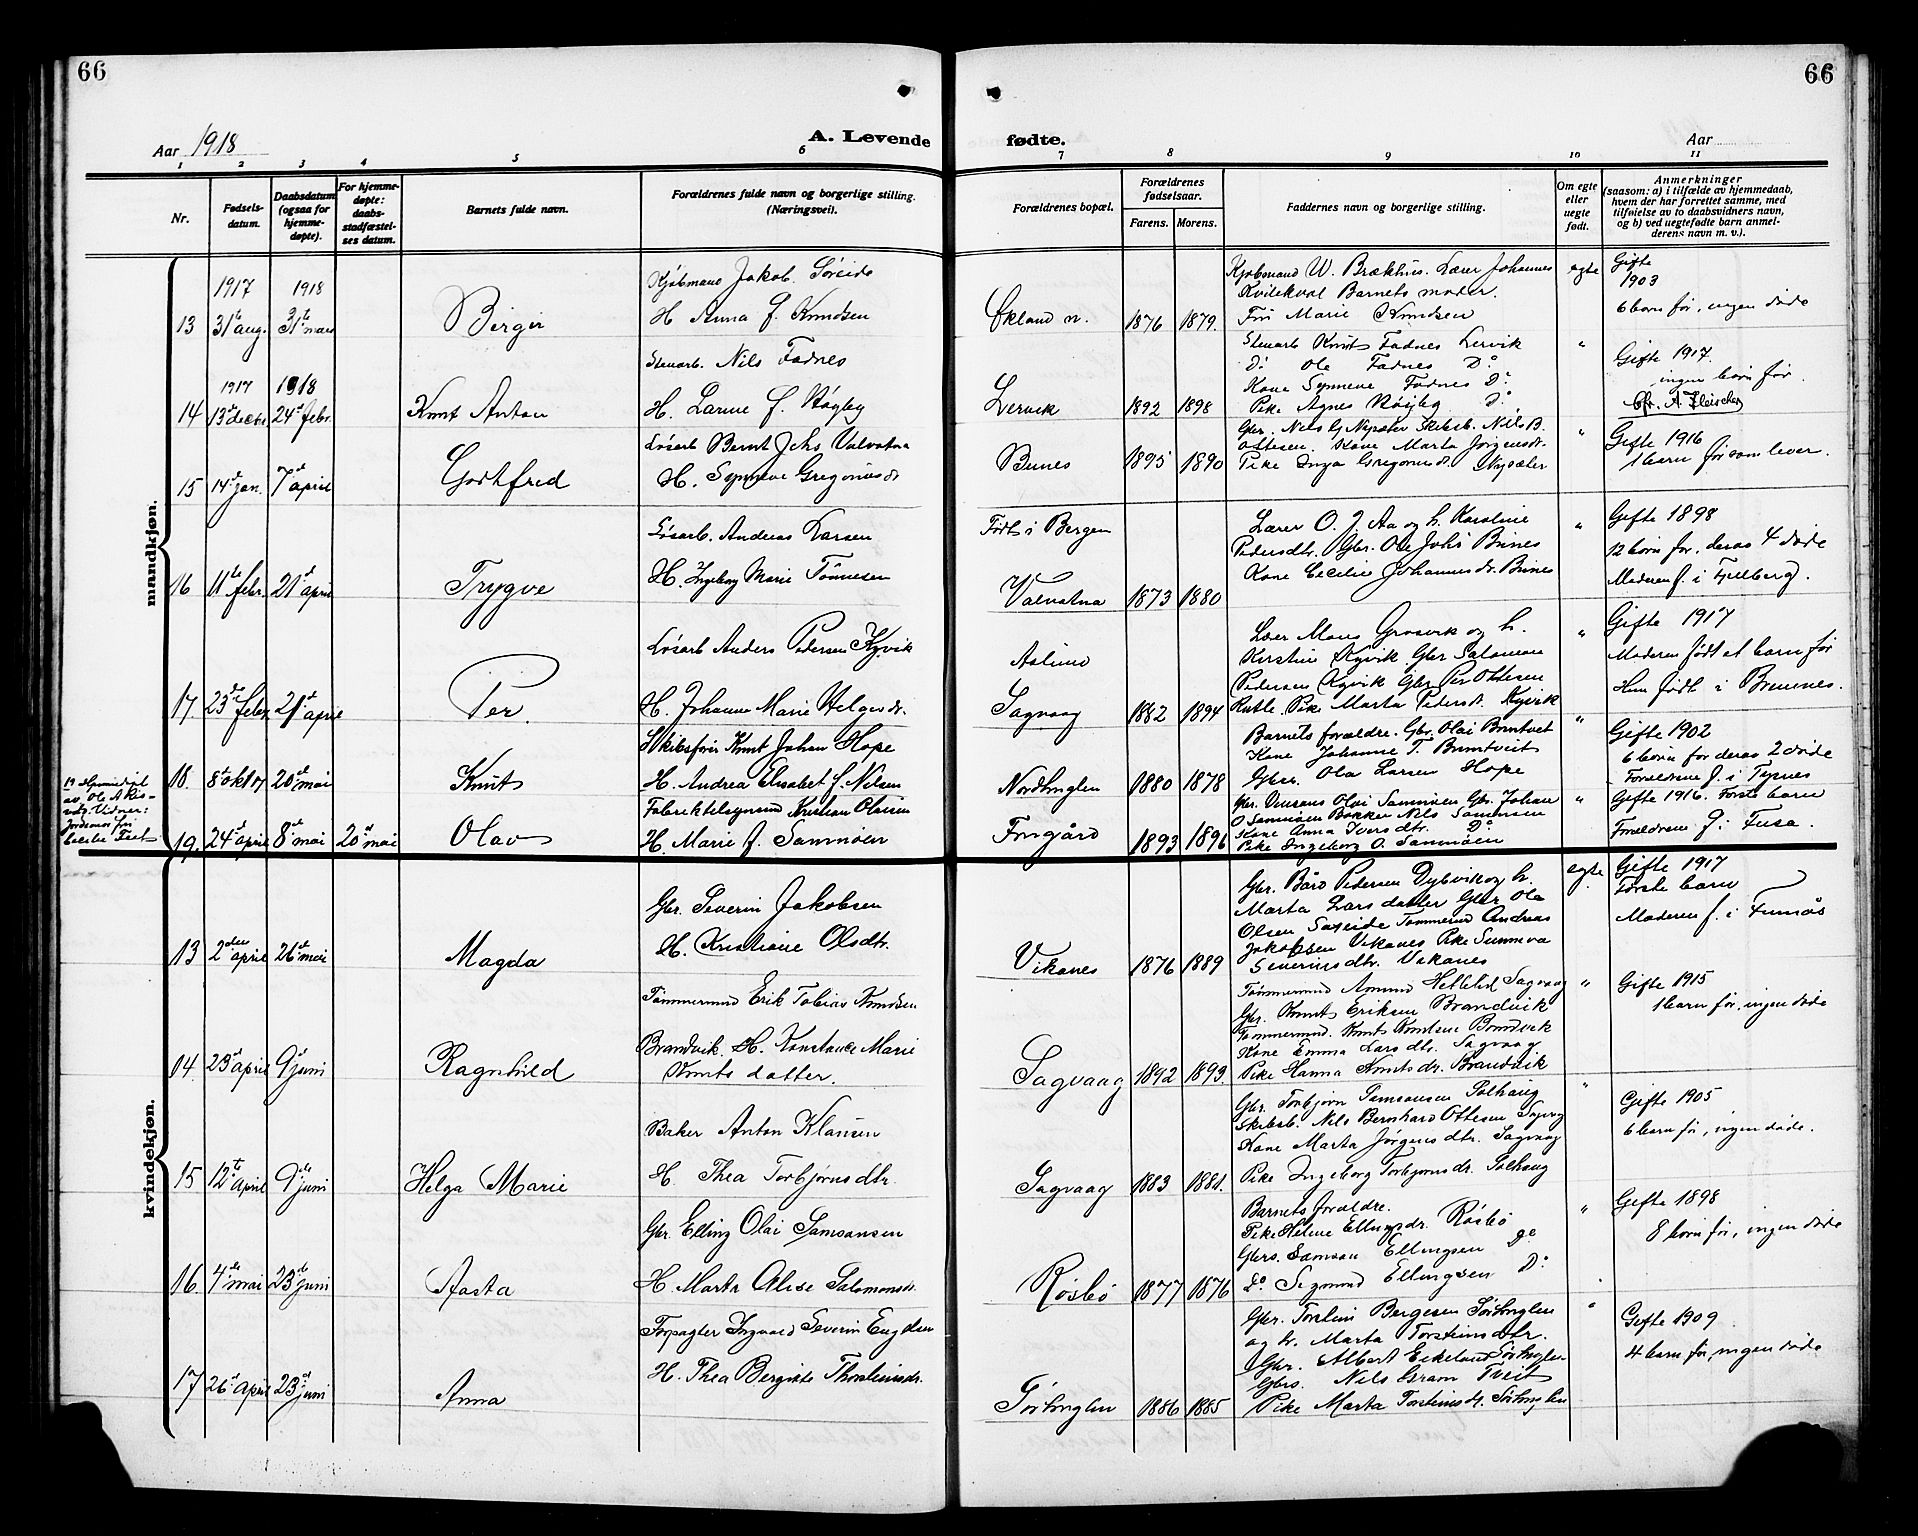 66
66
Aar 1918
A. Levende
fødte.
Aar
1 2 3 4 5 6 7 8 9 10 11
Nr.
Fødsels-
datum.
Daabsdatum
(ogsaa for
hjemme-
døpte).
For hjemme-
døpte:
daabs-
stadfæstel-
ses datum.
Barnets fulde navn.
Forældrenes fulde navn og borgerlige stilling.
(Næringsvei).
Forældrenes bopæl.
Forældrenes
fødselsaar.
Farens. Morens.
Faddernes navn og borgerlige stilling.
Om egte
eller
uegte
født.
Anmerkninger
(saasom: a) i tilfælde av hjemmedaab,
hvem der har forrettet samme, med
tilføielse av to daabsvidners navn,
og b) ved uegtefødte barn anmel-
derens navn m. v.).
mandkjøn.
1917 1918
13 31te aug. 31te mars Birger
Kjøbmand Jakob Søreide
H. Anna f. Knudsen
Økland n. 1876 1879.
Kjøbmand W. Brækhus. Lærer Johannes
Kvilekval Barnets moder.
Frk Marie Knudsen
egte
Gifte
1903
6 barn før, ingen døde
1917 1918
14 13de dec 24d febr. Knut Anton
Stenarb. Nils Fadnes
H. Larine f. Høgley
Lervik 1892 1898
Stenarb Knut Fadnes Lervik
Do Ole Fadnes Do
Kone Synneve Fadnes Do
Pike Agnes Do
"
Gifte 1917.
ingen barn før.
Cfr. A. Fleischer
15 14d jan. 7d april Gothfred
Løsarb Bernt Johs Valvatna
H. Synneve Gregoriusdr
Bunes 1895 1890
Gbr. Nils G Nysæter Skibsb. Nils B.
Ottesen. Kone Marta Jørgensdr.
Pike Inga Gregoriusdr Nysæter
"
Gifte 1916
1 barn før som lever.
16 11te febr. 21d april Trygve
Løsarb. Andreas Larsen
H. Ingeborg Marie Tønnesen
Født i Bergen
Valvatna 1873 1880
Lærer O. J. Aa og h. Karoline
Pedersdtr. Gbr. Ole Johs Bunes
Kone Cecilie Johannesdr. Bunes
"
Gifte 1898
12 barn før, deraf 4 døde
Moderen f. i Fjelberg.
17 23de febr. 21d april Per.
Løsarb Anders Pedersen Kyvik
H. Johanne Marie Helgesdr.
Aslund
Sagvaag 1882 1894
Lær Mons Grosvik og h.
Kirstine Kyvik Gbr Salomon
Pedersen Kyvik Gbr Per Ottesen
Rutle. Pike Marta Pedersdr. Kyvik
"
Gifte 1917
Moderen født et barn før
Hun født i Bremnes.
18. 8d okt 17 20d mai Knut
Skibsfører Knut Johan Hope
H. Andrea Elisabet f. Nilsen
Nordhuglen 1880 1878
Barnets forældre. Gbr. Olai Bruntveit
Kone Johanne T. Bruntveit
Gbr. Ola Larsen Hope
"
Gifte 1902
6 barn før deraf 2 døde
Forældrene f. i Tysnes
19. 24d april 8d mai 20d mai Olav
Fabrikktilsynsmd Kristian Olaisen
H. Marie f. Samnøen
1893 1896
Gbr. Olai Samnøen Gbr. Johan
O Samnøen Bøkker Nils Samnøen
Kone Anna Iversdtr. Do
Pike Ingeborg O. Samnøen
"
Gifte 1916. Første barn
Forældrene f. i Fusa.
kvindekjøn.
13 2den april 26d mai Magda
Gbr. Severin Jakobsen
H. Kristiane Olsdtr.
Vikanes 1876 1889
Gbr. Bård Pedersen Dybvik og h.
Marta Larsdatter Gbr Ola
Olsen Søreide Tømmermd Andreas
Jakobsen Vikanes Pike Sunneva
Severinsdtr. Vikanes
egte
Gifte 1917
Første barn
Moderen f. i
14. 23d april 9d juni Ragnhild
Tømmermand Erik Tobias Knudsen
Brandvik. H. Konstance Marie
Knutsdatter.
Sagvaag 1892 1893
Tømmermd Amund Sagvaag
Gbr. Knut Eriksen Brandvik
Tømmermd. Knut Knutsen Brandvik
Kone Emma Larsdtr. Sagvaag
Pike Hanna Knutsdr. Brandvik
"
Gifte 1915
1 barn før, ingen døde
15 12te april 9de juni Helga Marie
Baker Anton Klausen
H. Thea Torbjørnsdtr.
Sagvaag 1883 1881.
Gbr. Torbjørn Samsonsen Solhaug
Skibsb. Nils Bernhard Ottesen Sagvag
Kone Marta Jørgensdtr. Sagvag
Pike Ingeborg Torbjørnsdr. Solhaug
"
Gifte 1905
6 barn før, ingen døde.
16. 4de mai 23de juni Aasta
Gbr. Elling Olai Samsonsen
H. Marta Alise Salomonsdr.
Røsbø 1877 1876
Barnets forældre.
Pike Helene Ellingsdr. Røsbø
Gbrs. Samson Ellingsen Do
Do Sigmund Ellingsen Do
"
Gifte 1898
8 barn før, ingen døde
17 26d april 23d juni Anna
Forpagter Ingvald Severin Eugdsen
H. Thea Bergitte Thorsteinsdr.
Sørhuglen 1886 1885
Gbr. Torstein Bergesen Sørhuglen
og h. Marta Torsteinsdtr.
Gbr. Albert Eikeland Sørhuglen
Gbrs. Nils Gram Tveit
Pike Marta Torsteinsdr. Sørhuglen
"
Gifte 1909
4 barn før, ingen døde